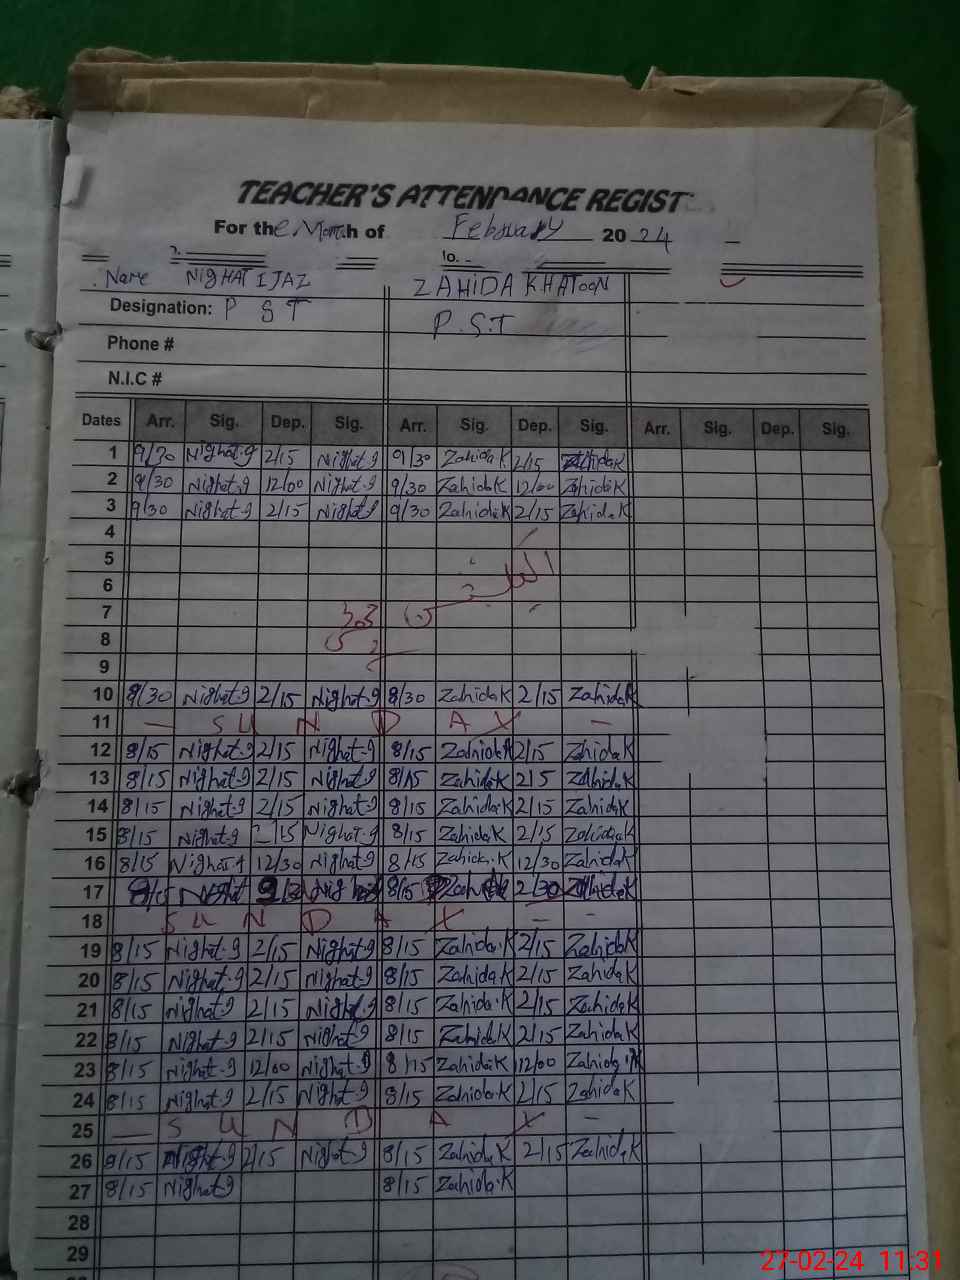 TEACHER'S ATTENDANCE REGIST
For the Month of February 2024
Name NIGHAT IJAZ ZAHIDA KHATOON
Designation: P S T P.S.T
Phone #
N.I.C #
Dates Arr. Sig. Dep. Sig. Arr. Sig. Dep. Sig. Arr. Sig. Dep. Sig.
1 9/30 Nighat.g 2/15 Nighat.g 9/30 ZahidaK 2/15 ZahidaK
2 9/30 Nighat.g 12/00 Nighat.g 9/30 ZahidaK 12/00 ZahidaK
3 9/30 Nighat.g 2/15 Nighat.g 9/30 ZahidaK 2/15 ZahidaK
4
5
6
7
8
9
10 8/30 Nighat.g 2/15 Nighat.g 8/30 ZahidaK 2/15 ZahidaK
11 — S U N D A Y —
12 8/15 Nighat.g 2/15 Nighat.g 8/15 ZahidaK 2/15 ZahidaK
13 8/15 Nighat.g 2/15 Nighat.g 8/15 ZahidaK 215 ZahidaK
14 8/15 Nighat.g 2/15 Nighat.g 8/15 ZahidaK 2/15 ZahidaK
15 8/15 Nighat.g 2/15 Nighat.g 8/15 ZahidaK 2/15 ZahidaK
16 8/15 Nighat.g 12/30 Nighat.g 8/15 Zahida.K 12/30 ZahidaK
17 8/15 Nighat 8/15 2/30 ZahidaK
18 S U N D A Y — –
19 8/15 Nighat.g 2/15 Nighat.g 8/15 Zahida.K 2/15 ZahidaK
20 8/15 Nighat.g 2/15 Nighat.g 8/15 ZahidaK 2/15 ZahidaK
21 8/15 Nighat.g 2/15 Nighat.g 8/15 Zahida.K 2/15 ZahidaK
22 8/15 Nighat.g 2/15 Nighat.g 8/15 ZahidaK 2/15 ZahidaK
23 8/15 Nighat.g 12/00 Nighat.g 8/15 ZahidaK 12/00 Zahida.K
24 8/15 Nighat.g 2/15 Nighat.g 8/15 Zahida.K 2/15 ZahidaK
25 — S U N D A Y –
26 8/15 Nighat.g 2/15 Nighat.g 8/15 ZahidaK 2/15 ZahidaK
27 8/15 Nighat.g 8/15 Zahida.K
28
29
27-02-24 11:31